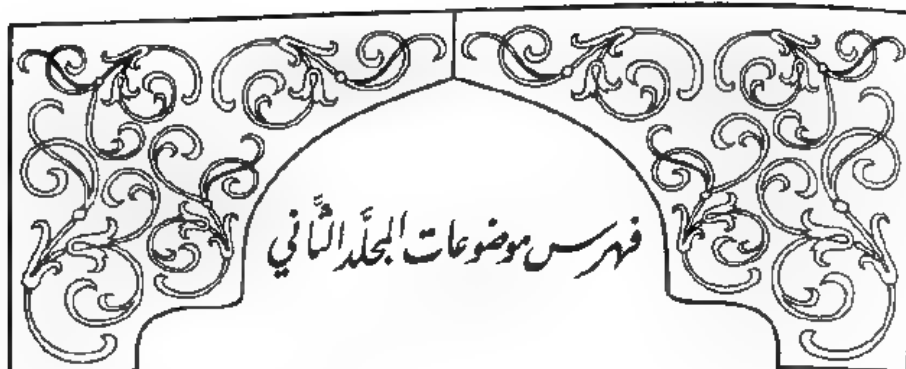 فهرس موضوعات المجلَّد الثَّاني